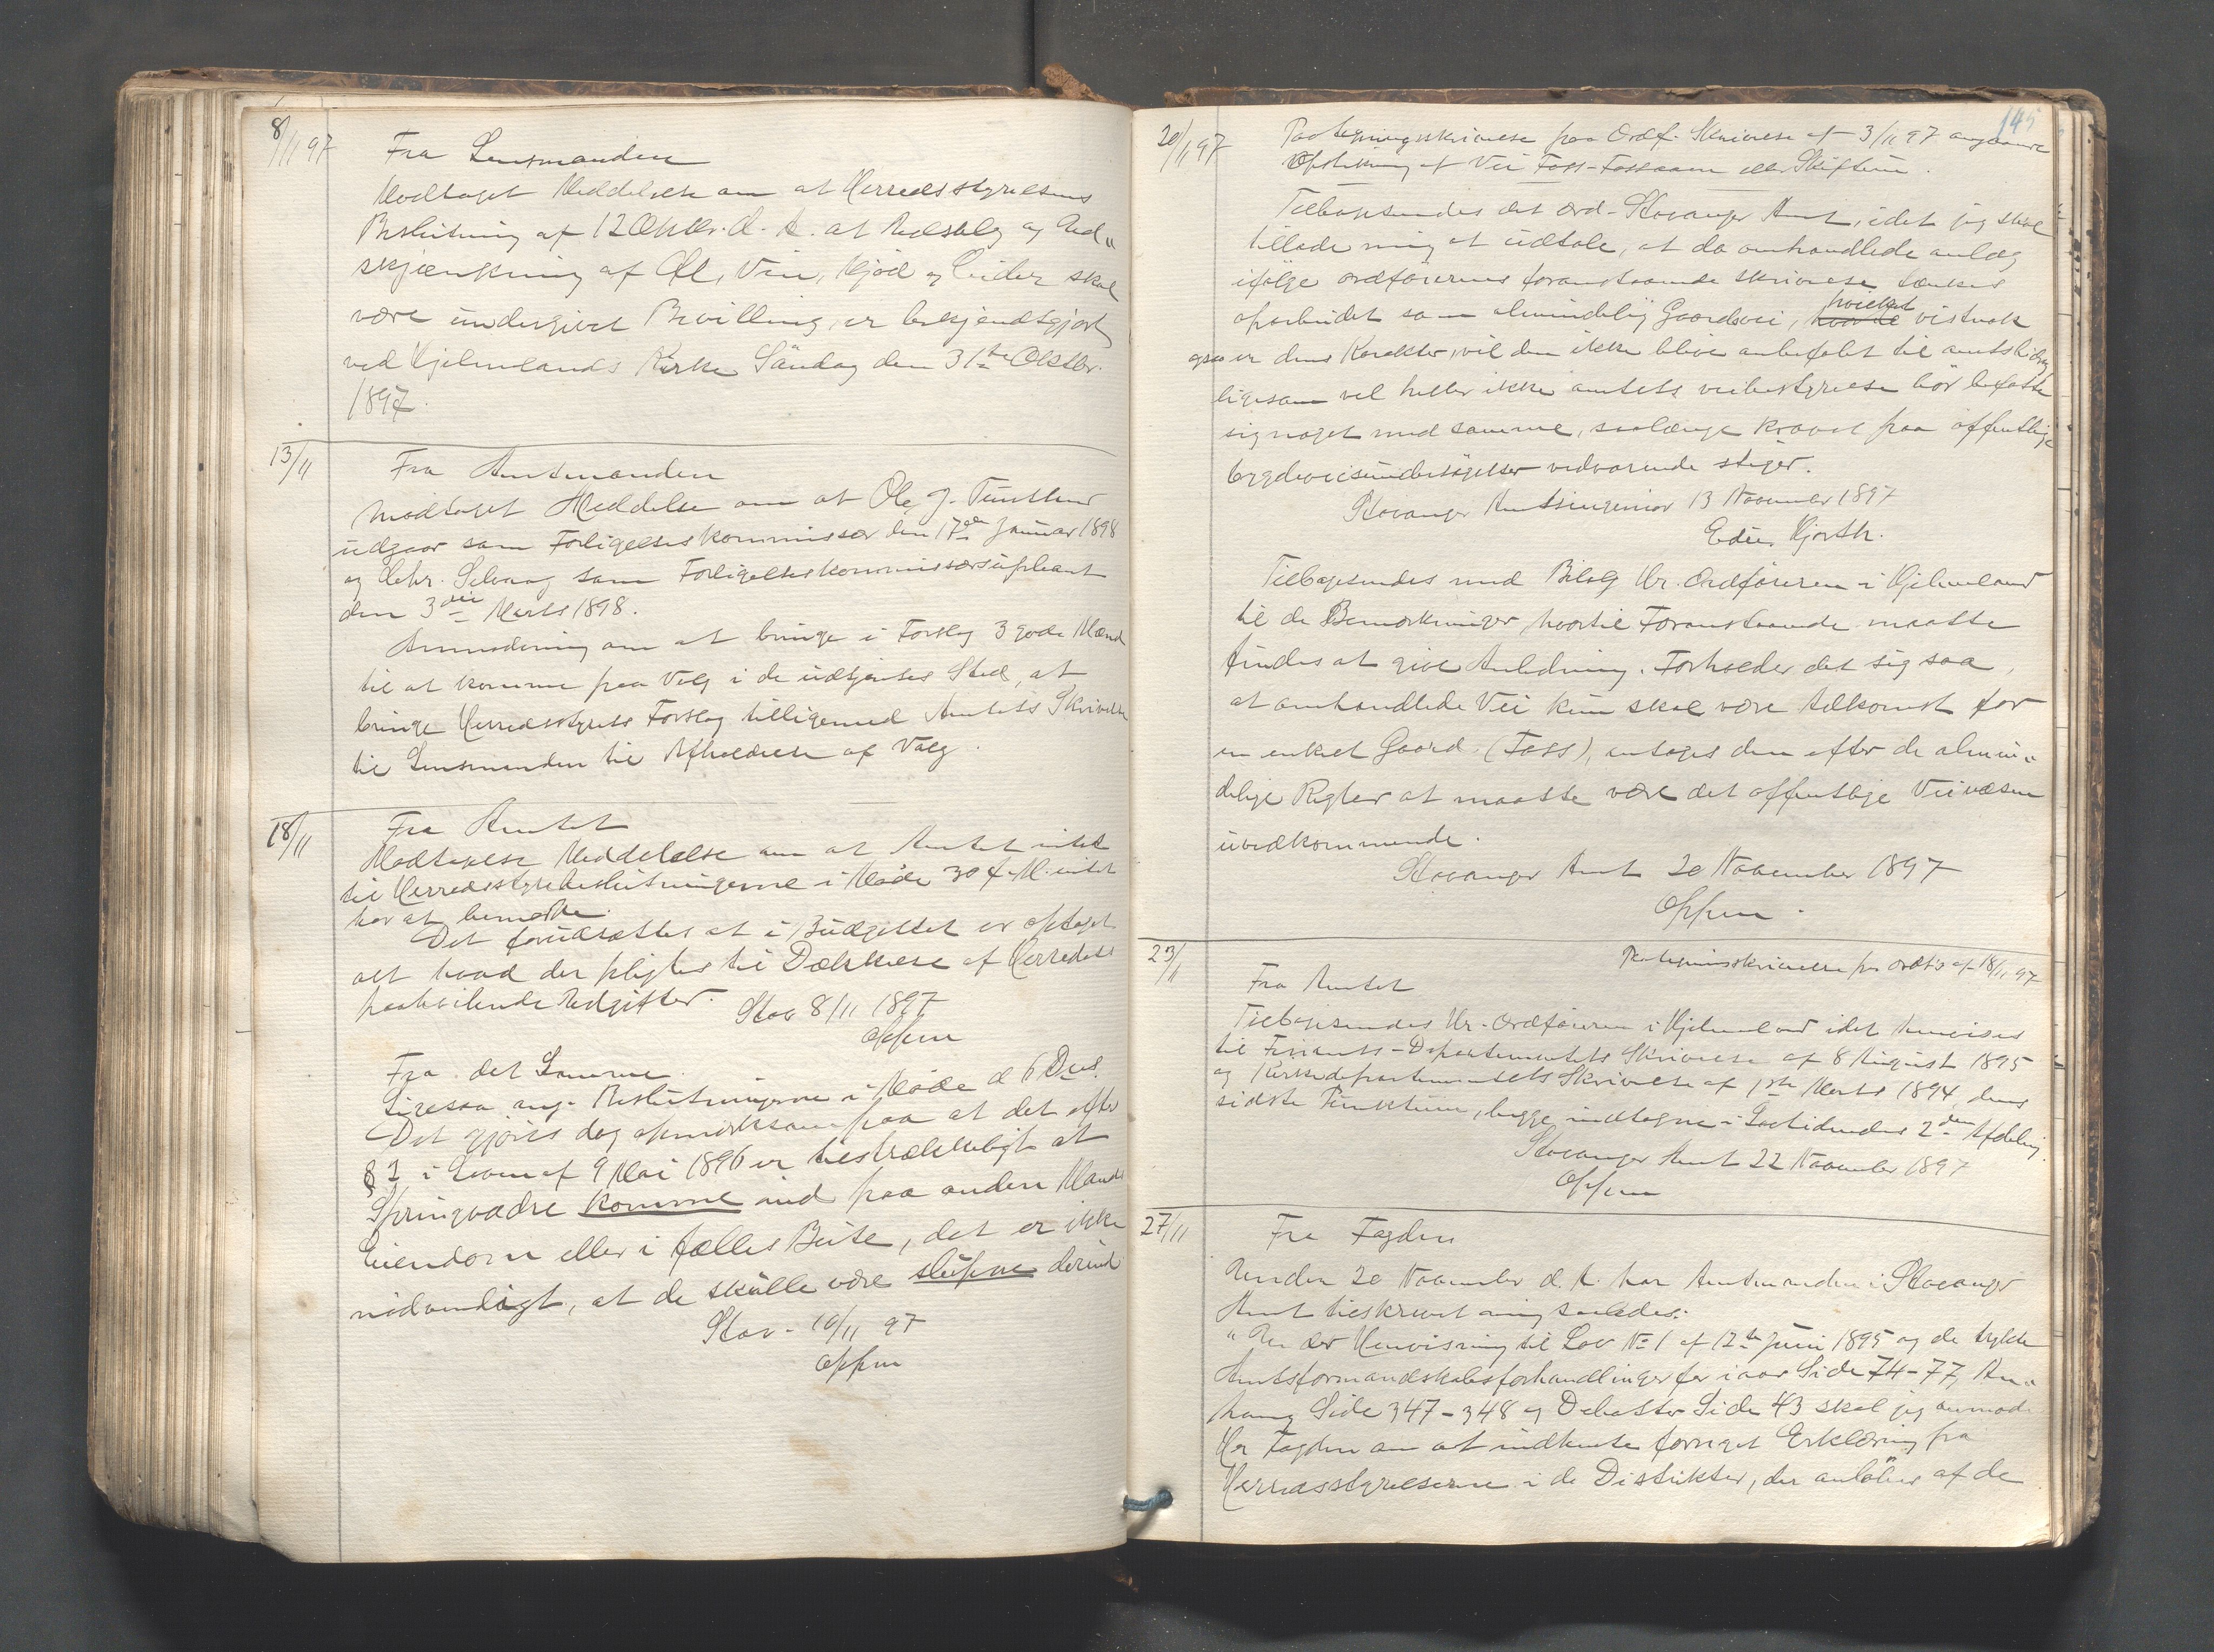 8/11 97
Fra Lensmanden
Modtaget Meddelelse om at Herredsstyrelsens
Beslutning af 12 Oktbr. d. A. at Udsalg og Ud„
skjænkning af Øl, Vin, Mjød og Cider skal
være undergivet Bevilling, er bekjendtgjort
ved Hjelmelands Kirke Søndag den 31te Oktbr.
1897.
13/11
Fra Amtmanden
Modtaget Meddelse om at Ole J.
udgaar som Forligelseskommissær den 17de Januar 1898
og Chr. som Forligelseskommissærsupleant
den 3die Marts 1898.
Anmodning om at bringe i Forslag 3 gode Mænd
til at komme paa Valg i de udtjentes Sted, at
bringe Herredsstyrets Forslag tilligemed Amtets Skrivelse
til Lensmanden til Afholdelse af Valg.
18/11
Fra Amtet
Modtagelse Meddelelse om at Amtet intet
til Herredsstyrebeslutningerne i Møde 30 f. M. intet
har at bemerke.
Det forudsættes at i Budgettet er optaget
alt hvad der pligtes til Dækkelse af Herredets
paahvilende Udgifter.
Stav 8/11 1897
Oppen
Fra det Samme.
Ligesaa ang. Beslutningerne i Møde d 6 Ds.
Det gjøres dog opmerksom paa at det efter
§ 3 i Loven af 9 Mai 1896 er tilstrækkeligt at
Springvædre komme ind paa anden Mands
Eiendom eller i fælles Beite, det er ikke
nødvendigt, at de skulle være slupne derind
Stav. 10/11 97
Oppen
145
20/11 97
Paategningsskrivelse paa Ordf. Skrivelse af 3/11 97 angaaende
Opstikning af Vei Foss-Fossaaen eller Skiftun.
Tilbagesendes det ærd. Stavanger Amt, idet jeg skal
tillade mig at udtale, at da omhandlede anlæg
ifølge ordførerens foranstaaende skrivelse tænkes
oparbeidet som almindelig Gaardsvei, hvilket vistnok
ogsaa er dens Karakter, vil den ikke blive anbefalet til amtsbidrag
ligesom vel heller ikke amtets veibestyrelse bør befatte
sig noget med samme, saalænge kravet paa offentlige
bygdeveisundersøgelser vedvarende stiger.
Stavanger Amtsingeniør 13 November 1897
Edv. Hjorth.
Tilbagesendes med Bilag Hr. Ordføreren i Hjelmeland
til de Bemerkninger, hvortil Foranstaaende maatte
findes at give Anledning. Forholder det sig saa,
at omhandlede Vei kun skal være Adkomst for
en enkelt Gaard (Foss), antages den efter de almin„
delige Regler at maatte være det offentlige Veivæsen
uvedkommende.
Stavanger Amt 20 November 1897
Oppen.
23/11
Paategningsskrivelse paa Ordfs af 18/11 97
Fra Amtet
Tilbagesendes Hr. Ordføreren i Hjelmeland idet henvises
til Finants-Departementets Skrivelse af 8 August 1895
og Kirkedepartementets Skrivelse af 1ste Marts 1894, dens
sidste Punktum, begge indtagne i Lovtidendes 2den Afdeling.
Stavanger Amt 22 November 1897
Oppen
27/11
Fra Fogden
Under 20 November d. A. har Amtmanden i Stavanger
Amt tilskrevet mig saaledes:
"Under Henvisning til Lov No 1 af 12te Juni 1895 og de trykte
Amtsformandskabsforhandlinger for iaar Side 74-77, An„
hang Side 347-348 og Debatter Side 43 skal jeg anmode
Hr Fogden om at indhente fornyet Erklæring fra
Herredsstyrelserne i de Distrikter, der anløbes af de